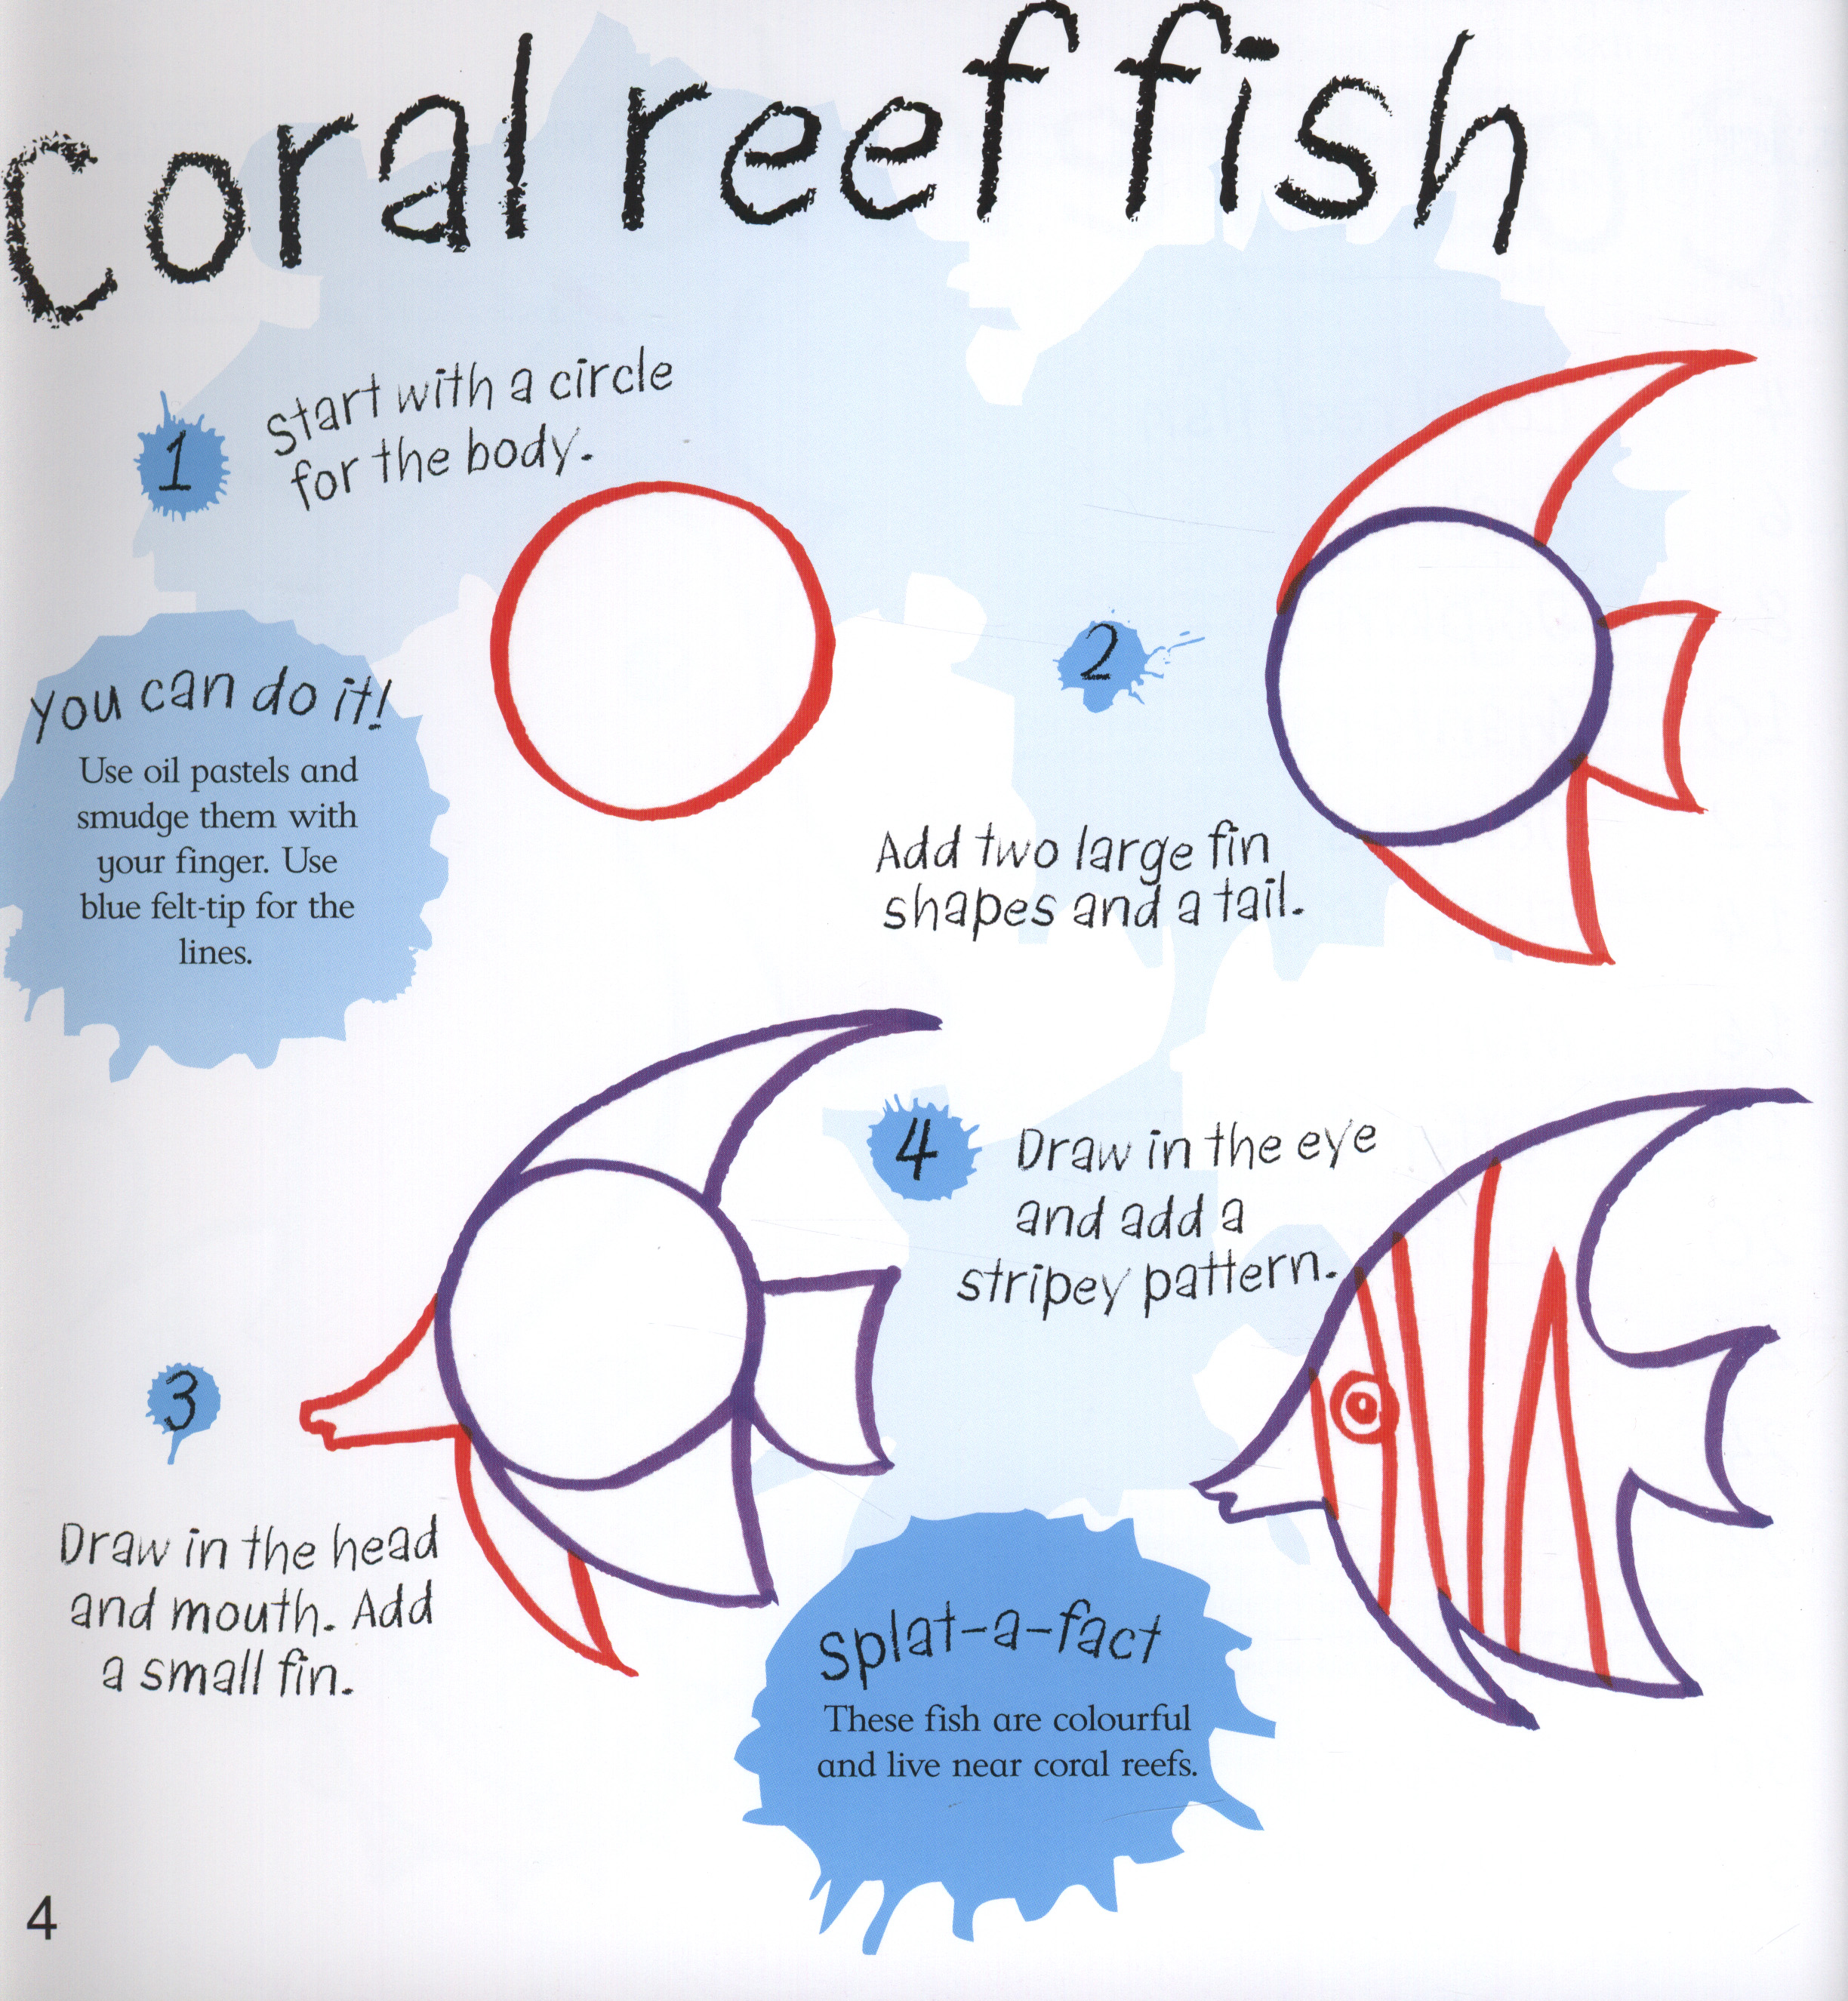 Coral reef fish
1
Start with a circle
for the body.
you can do it!
Use oil pastels and
smudge them with
your finger. Use
blue felt-tip for the
lines.
2
Add two large fin
shapes and a tail.
3
Draw in the head
and mouth. Add
a small fin.
4
Draw in the eye
and add a
stripey pattern.
splat-a-fact
These fish are colourful
and live near coral reefs.
4